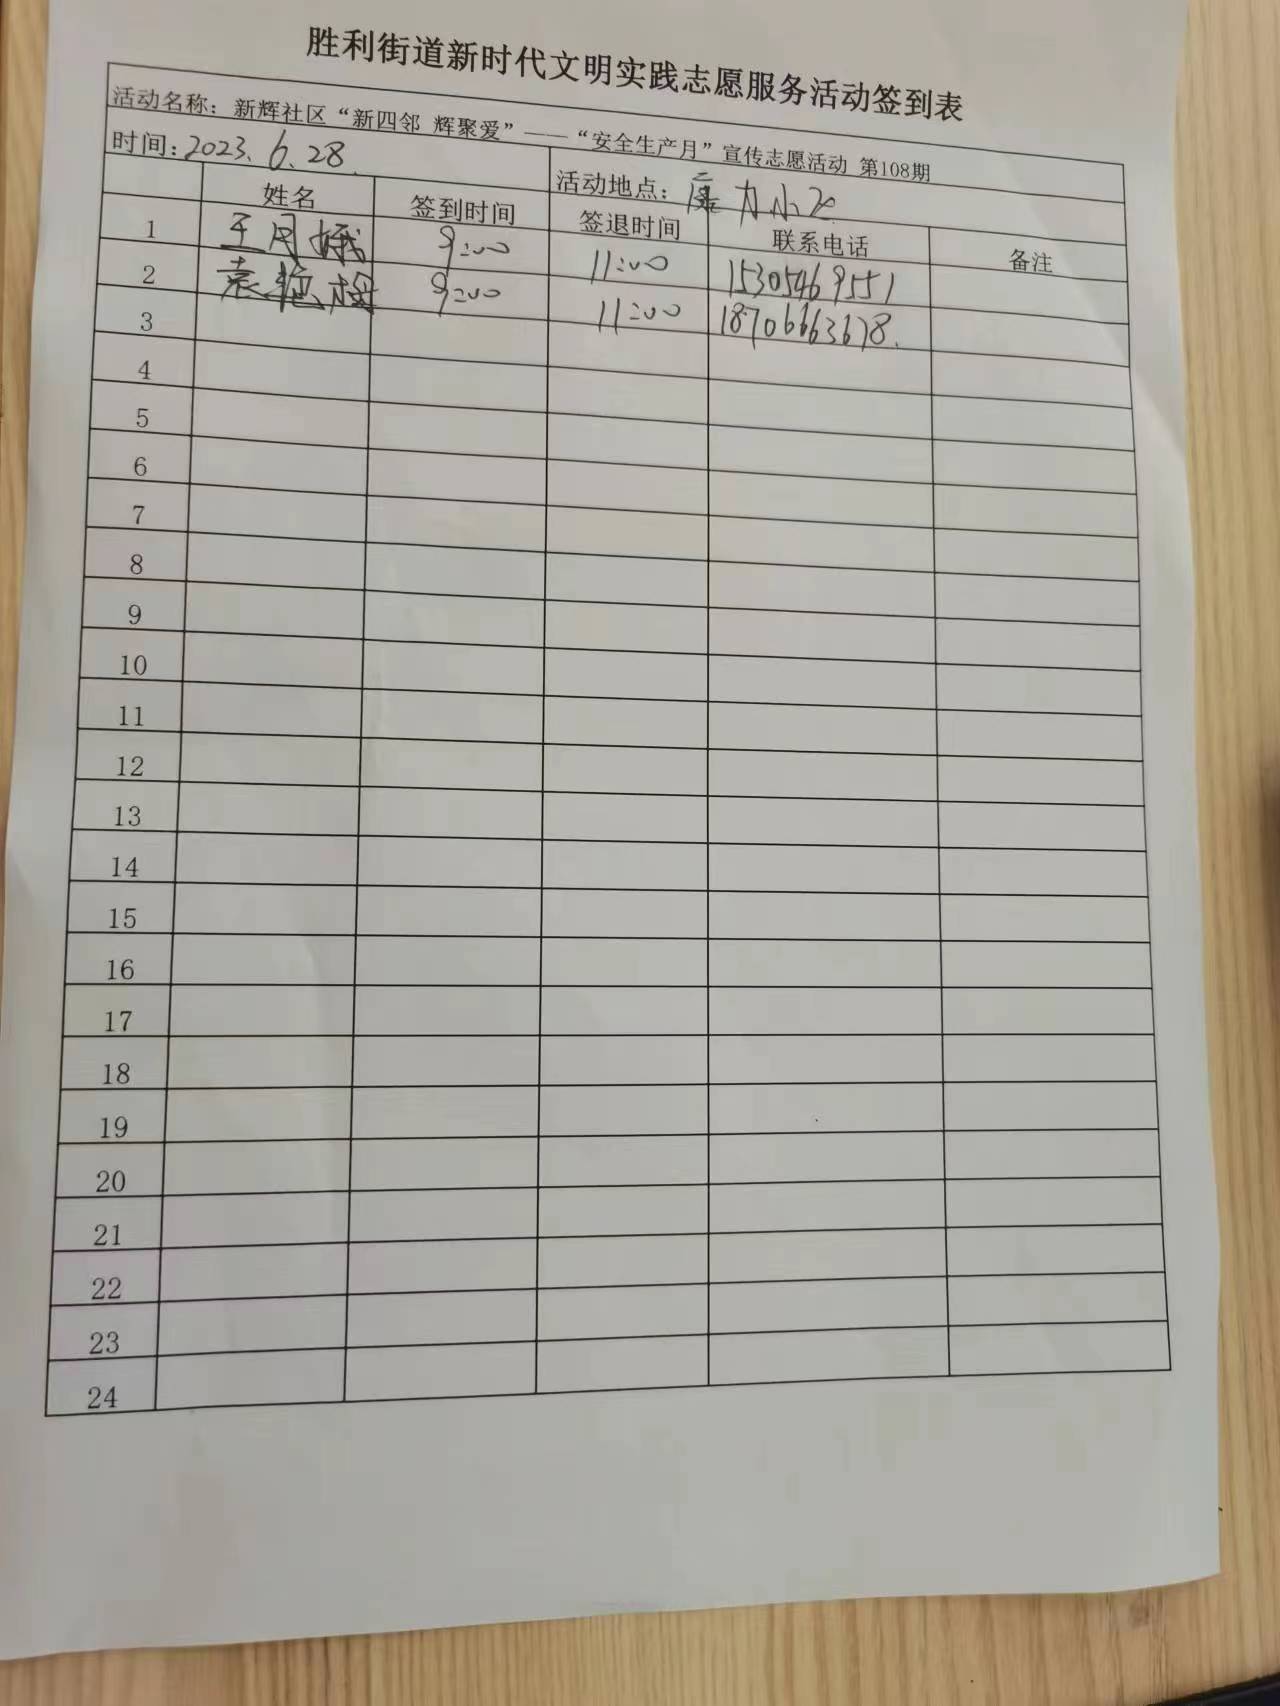 胜利街道新时代文明实践志愿服务活动签到表
活动名称：新辉社区“新四邻 辉聚爱”——“安全生产月”宣传志愿活动 第108期
时间：2023.6.28. 活动地点：康力小区
姓名 签到时间 签退时间 联系电话 备注
1 王月娥 9:00 11:00 15305469551
2 袁艳梅 9:00 11:00 18706663678.
3
4
5
6
7
8
9
10
11
12
13
14
15
16
17
18
19
20
21
22
23
24